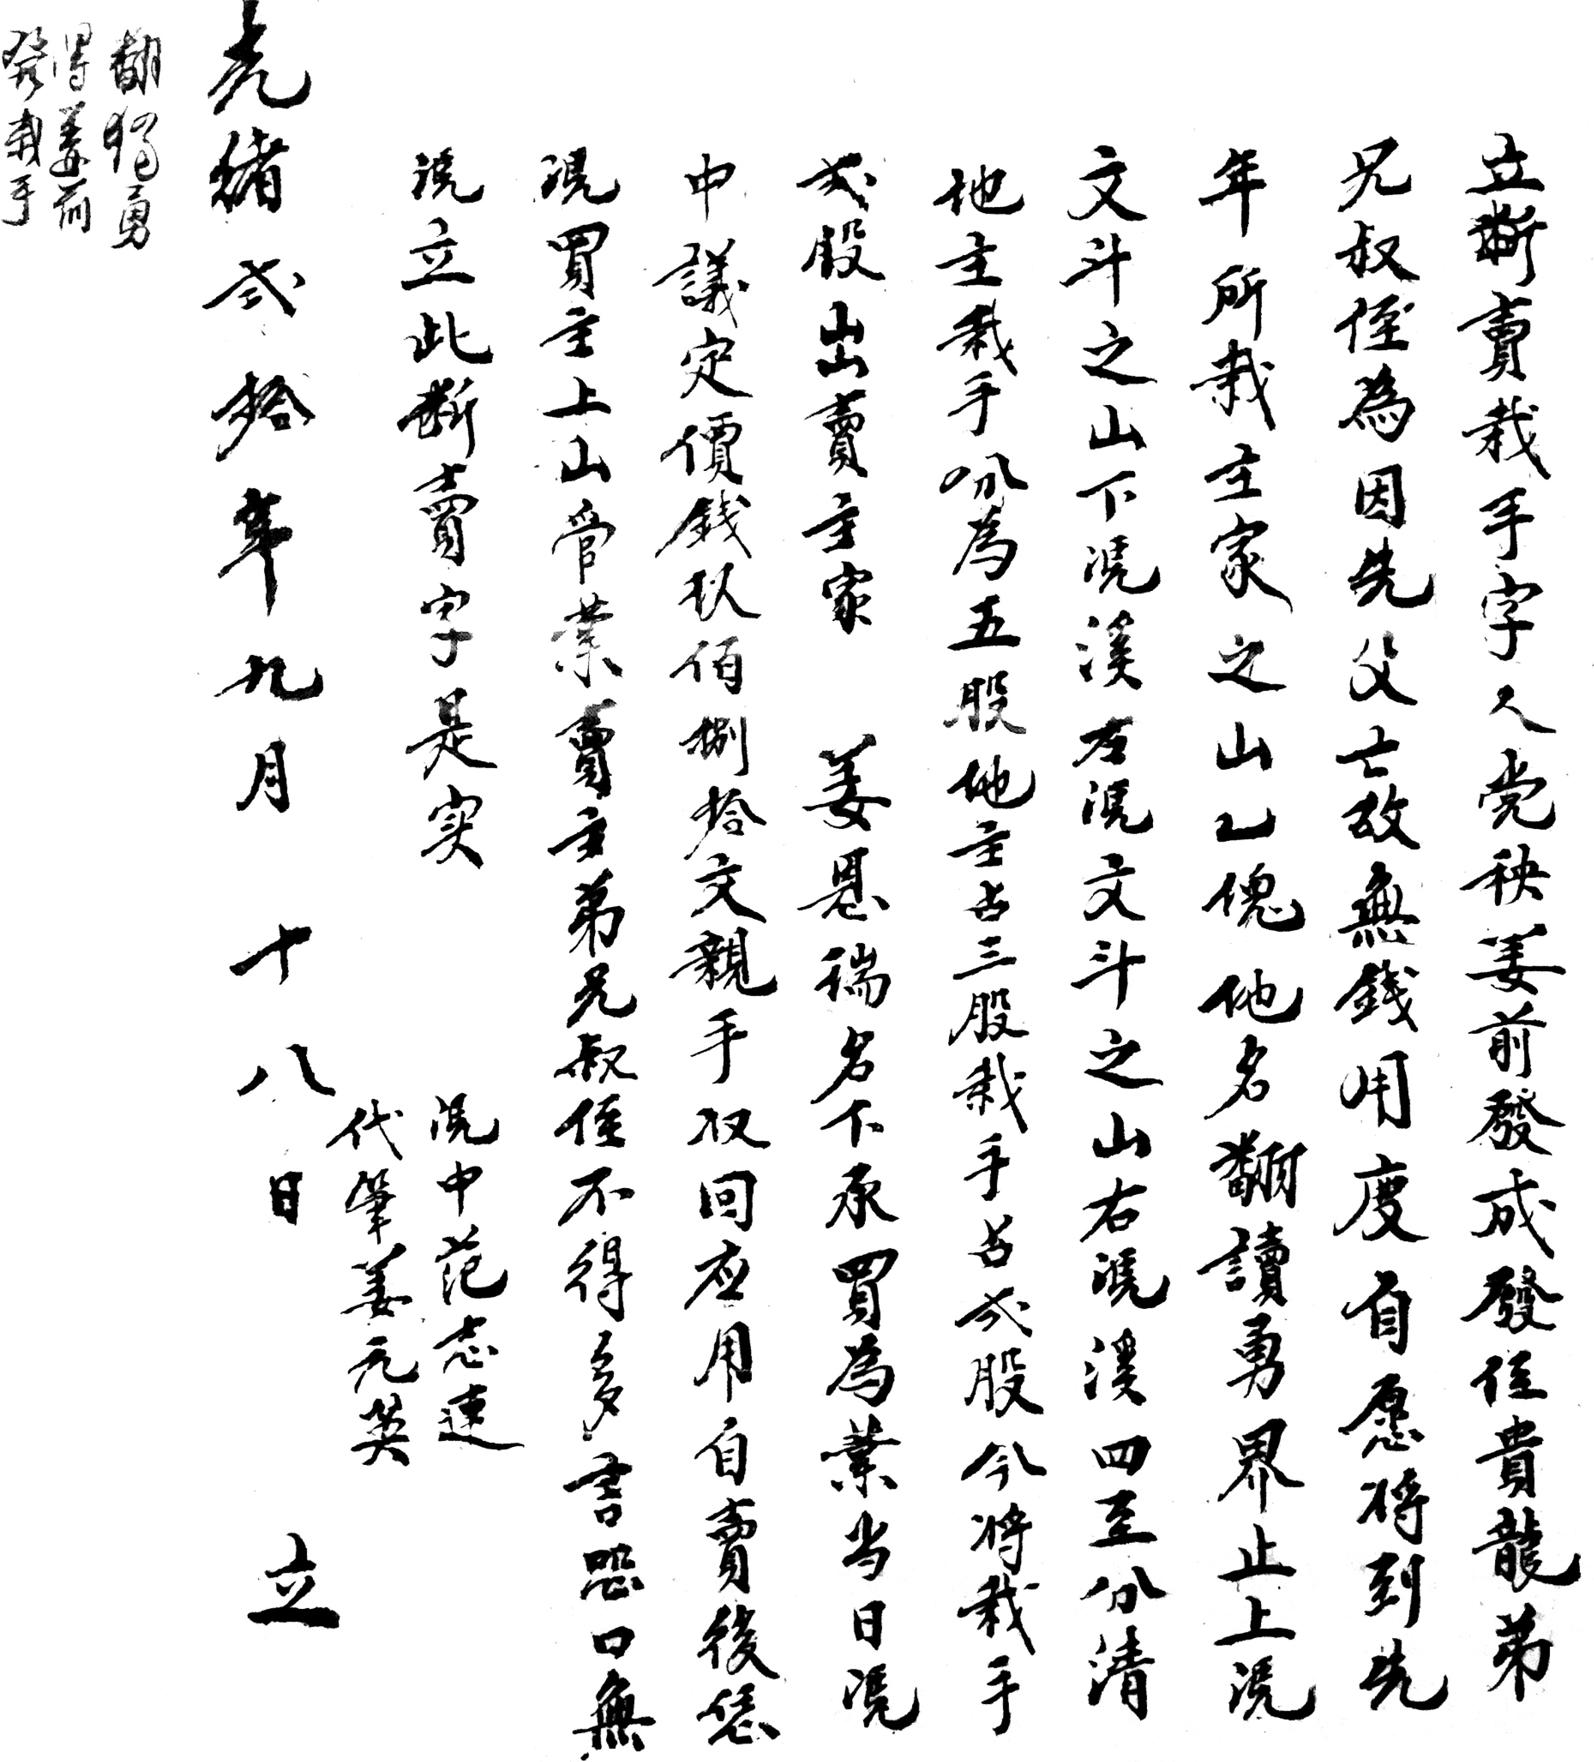 立斷賣栽手字人党秧姜前發成發侄貴龍弟
兄叔侄為因先父亡故無錢用度自愿將到先
年所栽主家之山乙傀他名翻讀勇界止上凴
文斗之山下凴溪左凴文斗之山右凴溪四至分清
地主栽手分為五股地主占三股栽手占弍股今將栽手
弍股出賣主家 姜恩瑞名下承買為業当日凴
中議定價錢玖佰捌拾文親手收回应用自賣後恁
凴買主上山管業賣主弟兄叔侄不得多言恐口無
凴立此斷賣字是实
凴中范志連
代筆姜元英
光緒弍拾年九月十八日 立
翻獨勇
得姜前
發栽手